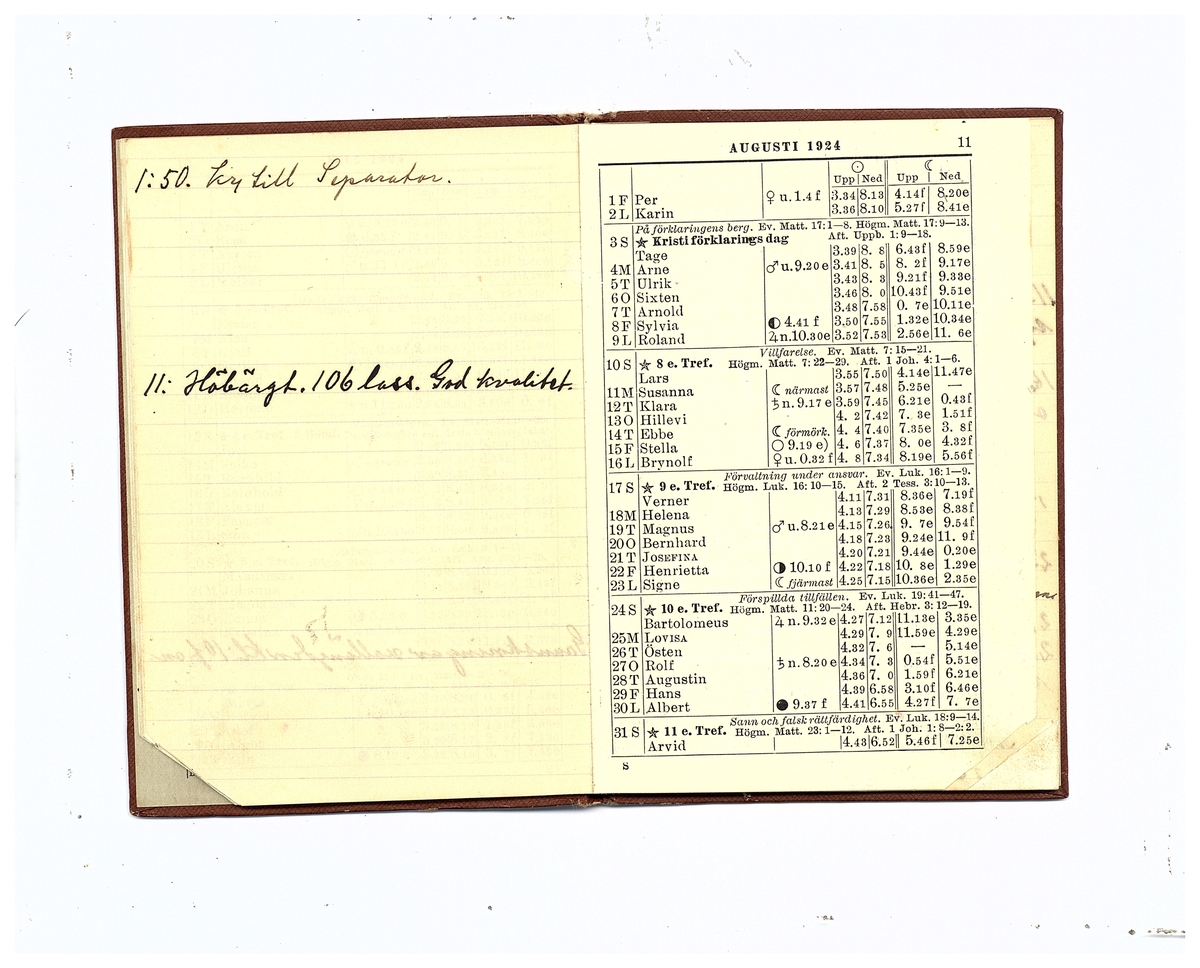 1:50. Kr till Separator.
11: Höbärgt. 106 lass. God kvalitet.
AUGUSTI 1924 11
☉ ☾
Upp Ned Upp Ned
1 F Per ♀ u. 1.4 f 3.34 8.13 4.14f 8.20e
2 L Karin 3.36 8.10 5.27f 8.41e
På förklaringens berg. Ev. Matt. 17: 1—8. Högm. Matt. 17: 9—13.
3 S ★ Kristi förklarings dag Aft. Uppb. 1: 9—18.
Tage 3.39 8. 8 6.43f 8.59e
4 M Arne ♂ u. 9.20 e 3.41 8. 5 8. 2f 9.17e
5 T Ulrik 3.43 8. 3 9.21f 9.33e
6 O Sixten 3.46 8. 0 10.43f 9.51e
7 T Arnold 3.48 7.58 0. 7e 10.11e
8 F Sylvia ◐ 4.41 f 3.50 7.55 1.32e 10.34e
9 L Roland ♃ n. 10.30e 3.52 7.53 2.56e 11. 6e
Villfarelse. Ev. Matt. 7: 15—21.
10 S ★ 8 e. Tref. Högm. Matt. 7: 22—29. Aft. 1 Joh. 4: 1—6.
Lars 3.55 7.50 4.14e 11.47e
11 M Susanna ☾ närmast 3.57 7.48 5.25e —
12 T Klara ♄ n. 9.17 e 3.59 7.45 6.21e 0.43f
13 O Hillevi 4. 2 7.42 7. 3e 1.51f
14 T Ebbe ☾ förmörk. 4. 4 7.40 7.35e 3. 8f
15 F Stella ○ 9.19 e) 4. 6 7.37 8. 0e 4.32f
16 L Brynolf ♀ u. 0.32 f 4. 8 7.34 8.19e 5.56f
Förvaltning under ansvar. Ev. Luk. 16: 1—9.
17 S ★ 9 e. Tref. Högm. Luk. 16: 10—15. Aft. 2 Tess. 3: 10—13.
Verner 4.11 7.31 8.36e 7.19f
18 M Helena 4.13 7.29 8.53e 8.38f
19 T Magnus ♂ u. 8.21 e 4.15 7.26 9. 7e 9.54f
20 O Bernhard 4.18 7.23 9.24e 11. 9f
21 T JOSEFINA 4.20 7.21 9.44e 0.20e
22 F Henrietta ◑ 10.10 f 4.22 7.18 10. 8e 1.29e
23 L Signe ☾ fjärmast 4.25 7.15 10.36e 2.35e
Förspillda tillfällen. Ev. Luk. 19: 41—47.
24 S ★ 10 e. Tref. Högm. Matt. 11: 20—24. Aft. Hebr. 3: 12—19.
Bartolomeus ♃ n. 9.32 e 4.27 7.12 11.13e 3.35e
25 M LOVISA 4.29 7. 9 11.59e 4.29e
26 T Östen 4.32 7. 6 — 5.14e
27 O Rolf ♄ n. 8.20 e 4.34 7. 3 0.54f 5.51e
28 T Augustin 4.36 7. 0 1.59f 6.21e
29 F Hans 4.39 6.58 3.10f 6.46e
30 L Albert ● 9.37 f 4.41 6.55 4.27f 7. 7e
Sann och falsk rättfärdighet. Ev. Luk. 18: 9—14.
31 S ★ 11 e. Tref. Högm. Matt. 23: 1—12. Aft. 1 Joh. 1: 8—2: 2.
Arvid 4.43 6.52 5.46f 7.25e
S